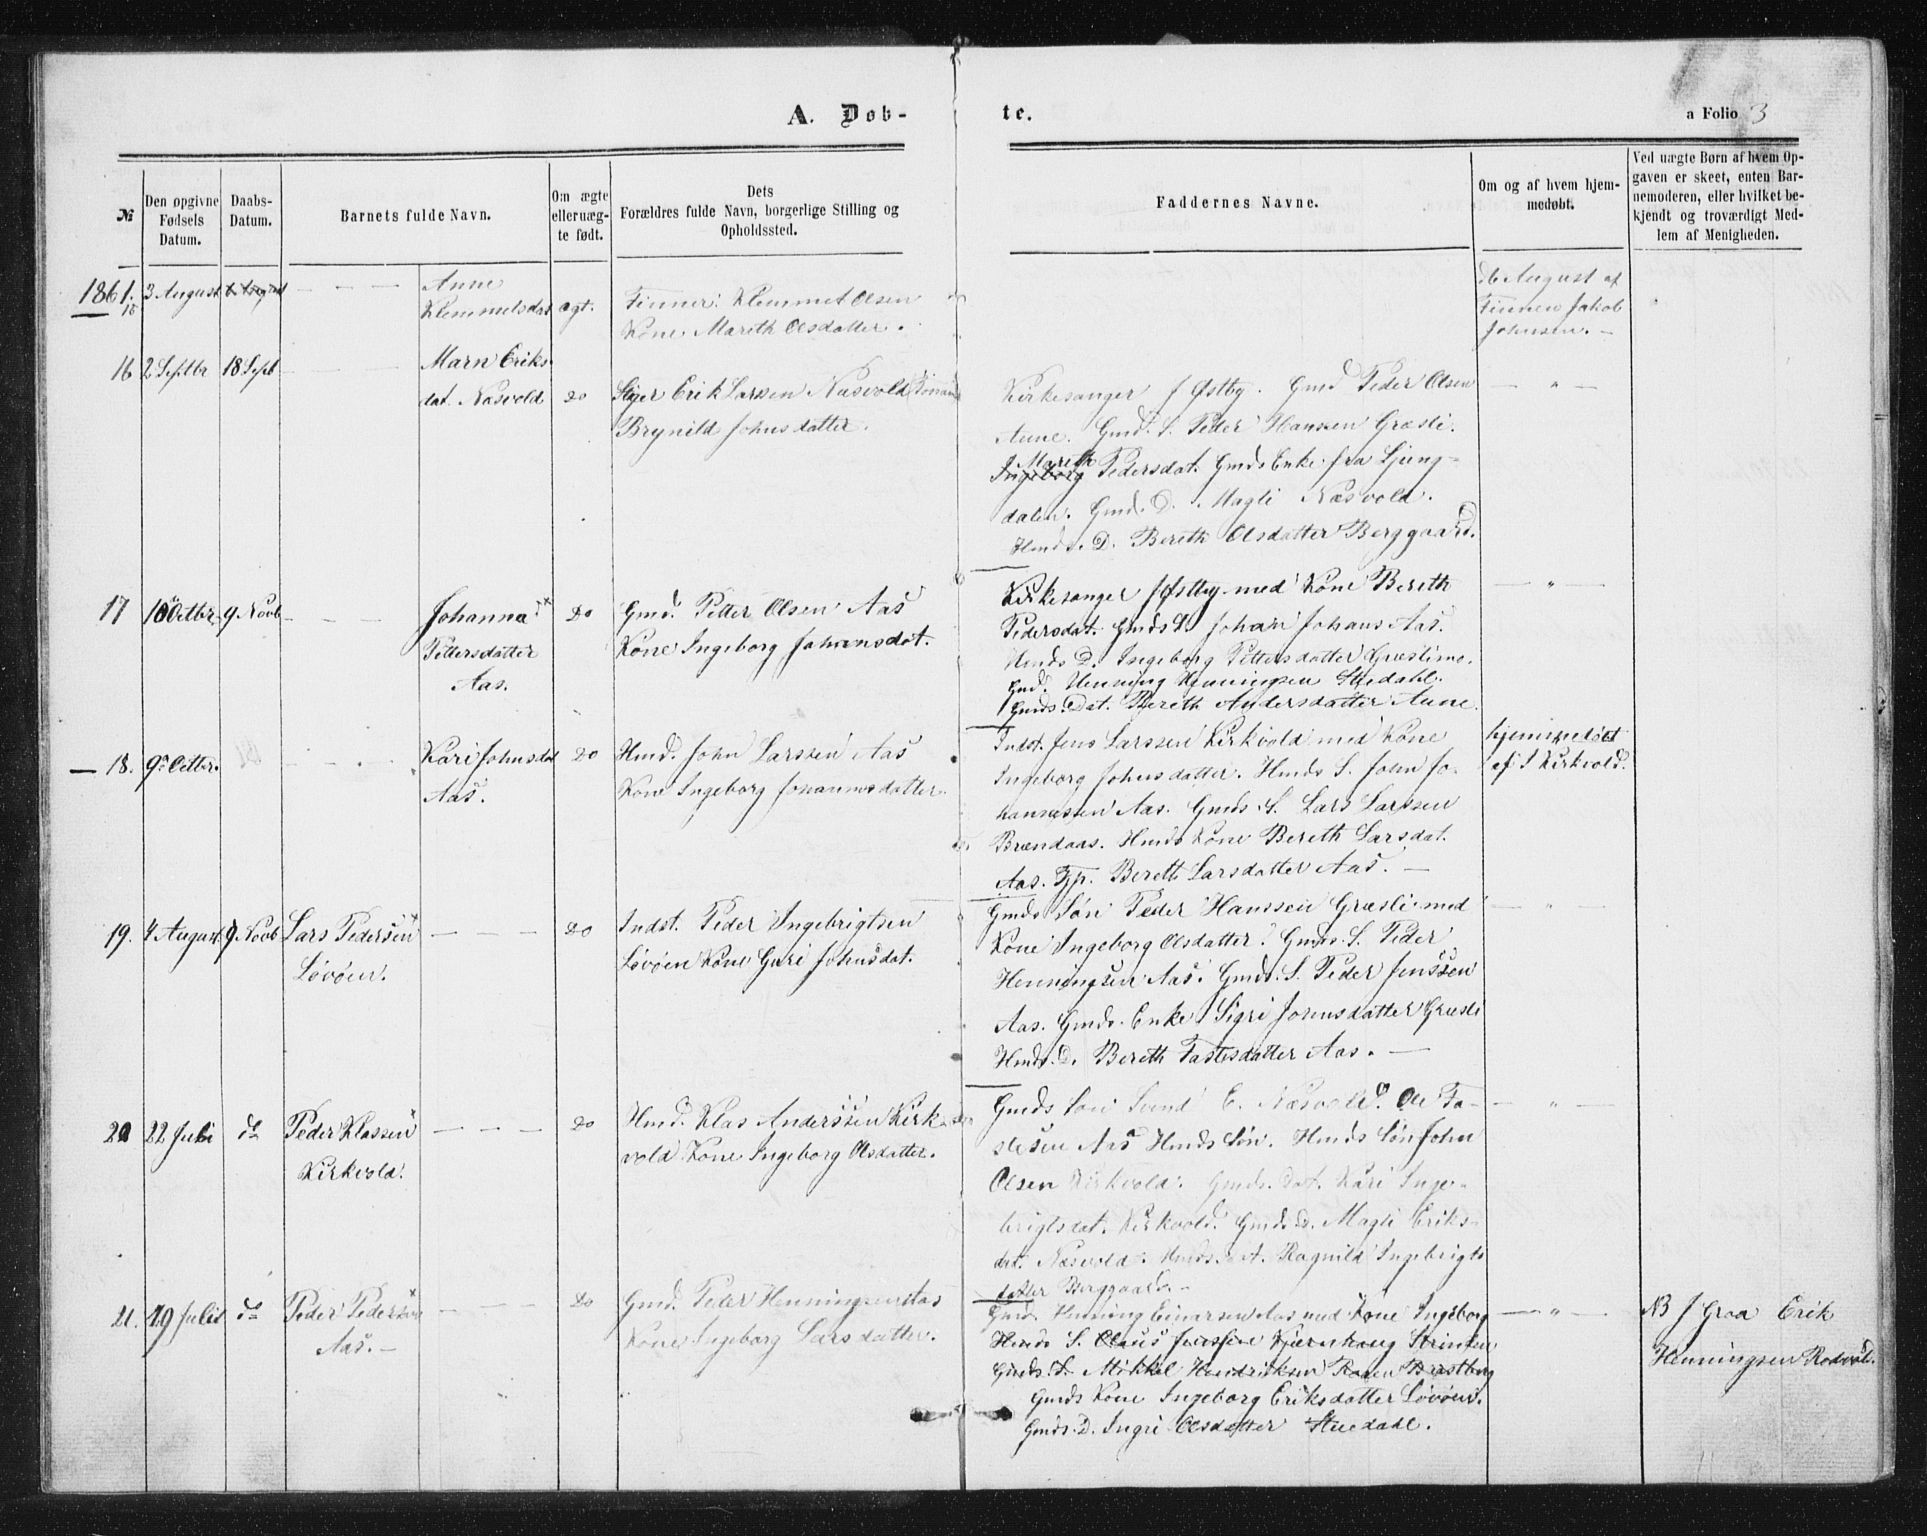 A. Døb-
te.
a Folio 3
№
Den opgivne Fødsels Datum.
Daabs-Datum.
Barnets fulde Navn.
Om ægte eller uæg-te født.
Dets Forældres fulde Navn, borgerlige Stilling og Opholdssted.
Faddernes Navne.
Om og af hvem hjem-medøbt.
Ved uægte Børn af hvem Op-gaven er skeet, enten Bar-nemoderen, eller hvilket be-kjendt og troværdigt Med-lem af Menigheden.
1861.
15 3 August
Anne
Klemmetsdat ægt.
Finner: Klemmet Olsen
Kone Mareth Olsdatter.
d 6 August af
Finnen Jakob
Johnsen. —
16 2 Septbr 18 Sept
Marn Eriks
dat. Nasvold do
Erik Larsen Nasvold
Brynild Johnsdatter.
Kirkesanger J Østby. Gmd Peder Olsen
Aune. Gmd. S. Peder Hanssen Græsli.
Mareth
Ingeborg Pedersdat. Gmds Enke fra Ljung-
dalen. Gmd. D. Magli Næsvold.
Hmds. D. Bereth Olsdatter Berggaard.
— " —
17 10 Octbr 9 Novb
Johanna
Pettersdatter
Aas.
do
Gmd. Petter Olsen Aas
Kone Ingeborg Johansdat.
Kirkesanger J Østby med Kone Bereth
Pedersdat. Gmds S. Johan Johans Aas.
Hmds D. Ingeborg Pettersdatter Græslimo.
Gmd. Henning Henningsen Stuedahl.
Gmds. Dat. Bereth Andersdatter Aune.
— " —
18. 9de Octbr.
Kari Johnsdat
Aas.
do
Hmd. John Larssen Aas
Kone Ingeborg Johannesdatter.
Indst. Jens Larssen Kirkvold med Kone
Ingeborg Johnsdatter. Hmds S. John Jo-
hannessen Aas. Gmds S. Lars Larssen
Brændaas. Hmds Kone Bereth Larsdat.
Aas. Tjp. Bereth Larsdatter Aas. —
hjemmedøbt
af J Kirkvold.
19. 4 August 9 Novb
Lars Pedersen
Løvøen.
do
Indst. Peder Ingebrigtsen
Løvøen Kone Guri Johnsdat.
Gmds Søn Peder Hanssen Græsli med
Kone Ingeborg Olsdatter. Gmds. S. Peder
Henningsen Aas. Gmds. S. Peder Jenssen
Aas. Gmds. Enke Sigri Johnsdatter Græsli
Hmds. D. Bereth Fastesdatter Aas. —
— " —
20 22 Juli do
Peder Klassen
Kirkvold.
do
Hmd. Klas Anderssen Kirk-
vold Kone Ingeborg Olsdatter.
Gmds Søn Svend E. Næsvold. Ole Fa-
stesen Aas Hmds Søn. Hmds Søn John
Olsen Kirkvold. Gmds. Dat. Kari Inge-
brigtsdat. Kirkvold. Gmds D. Magli Eriks-
dat. Næsvold. Hmds. Dat. Ragnild Ingebrigts
datter Berggaard. —
— " —
21. 19 Juli do
Peder Pedersen
Aas. —
do
Gmd. Peder Henningsen Aas
Kone Ingeborg Larsdatter.
Gmd. Henning Einarsen Aas med Kone Ingeborg
Hmds S. Claus Jenssen Kjernhaug
Gmds. S. Mikkel Hendriksen
Gmds Kone Ingeborg Eriksdatter Løvøen.
Gmds. D. Ingri Olsdatter Stuedahl.
— " —
NB J Graa Erik
Henningsen Rodvold.